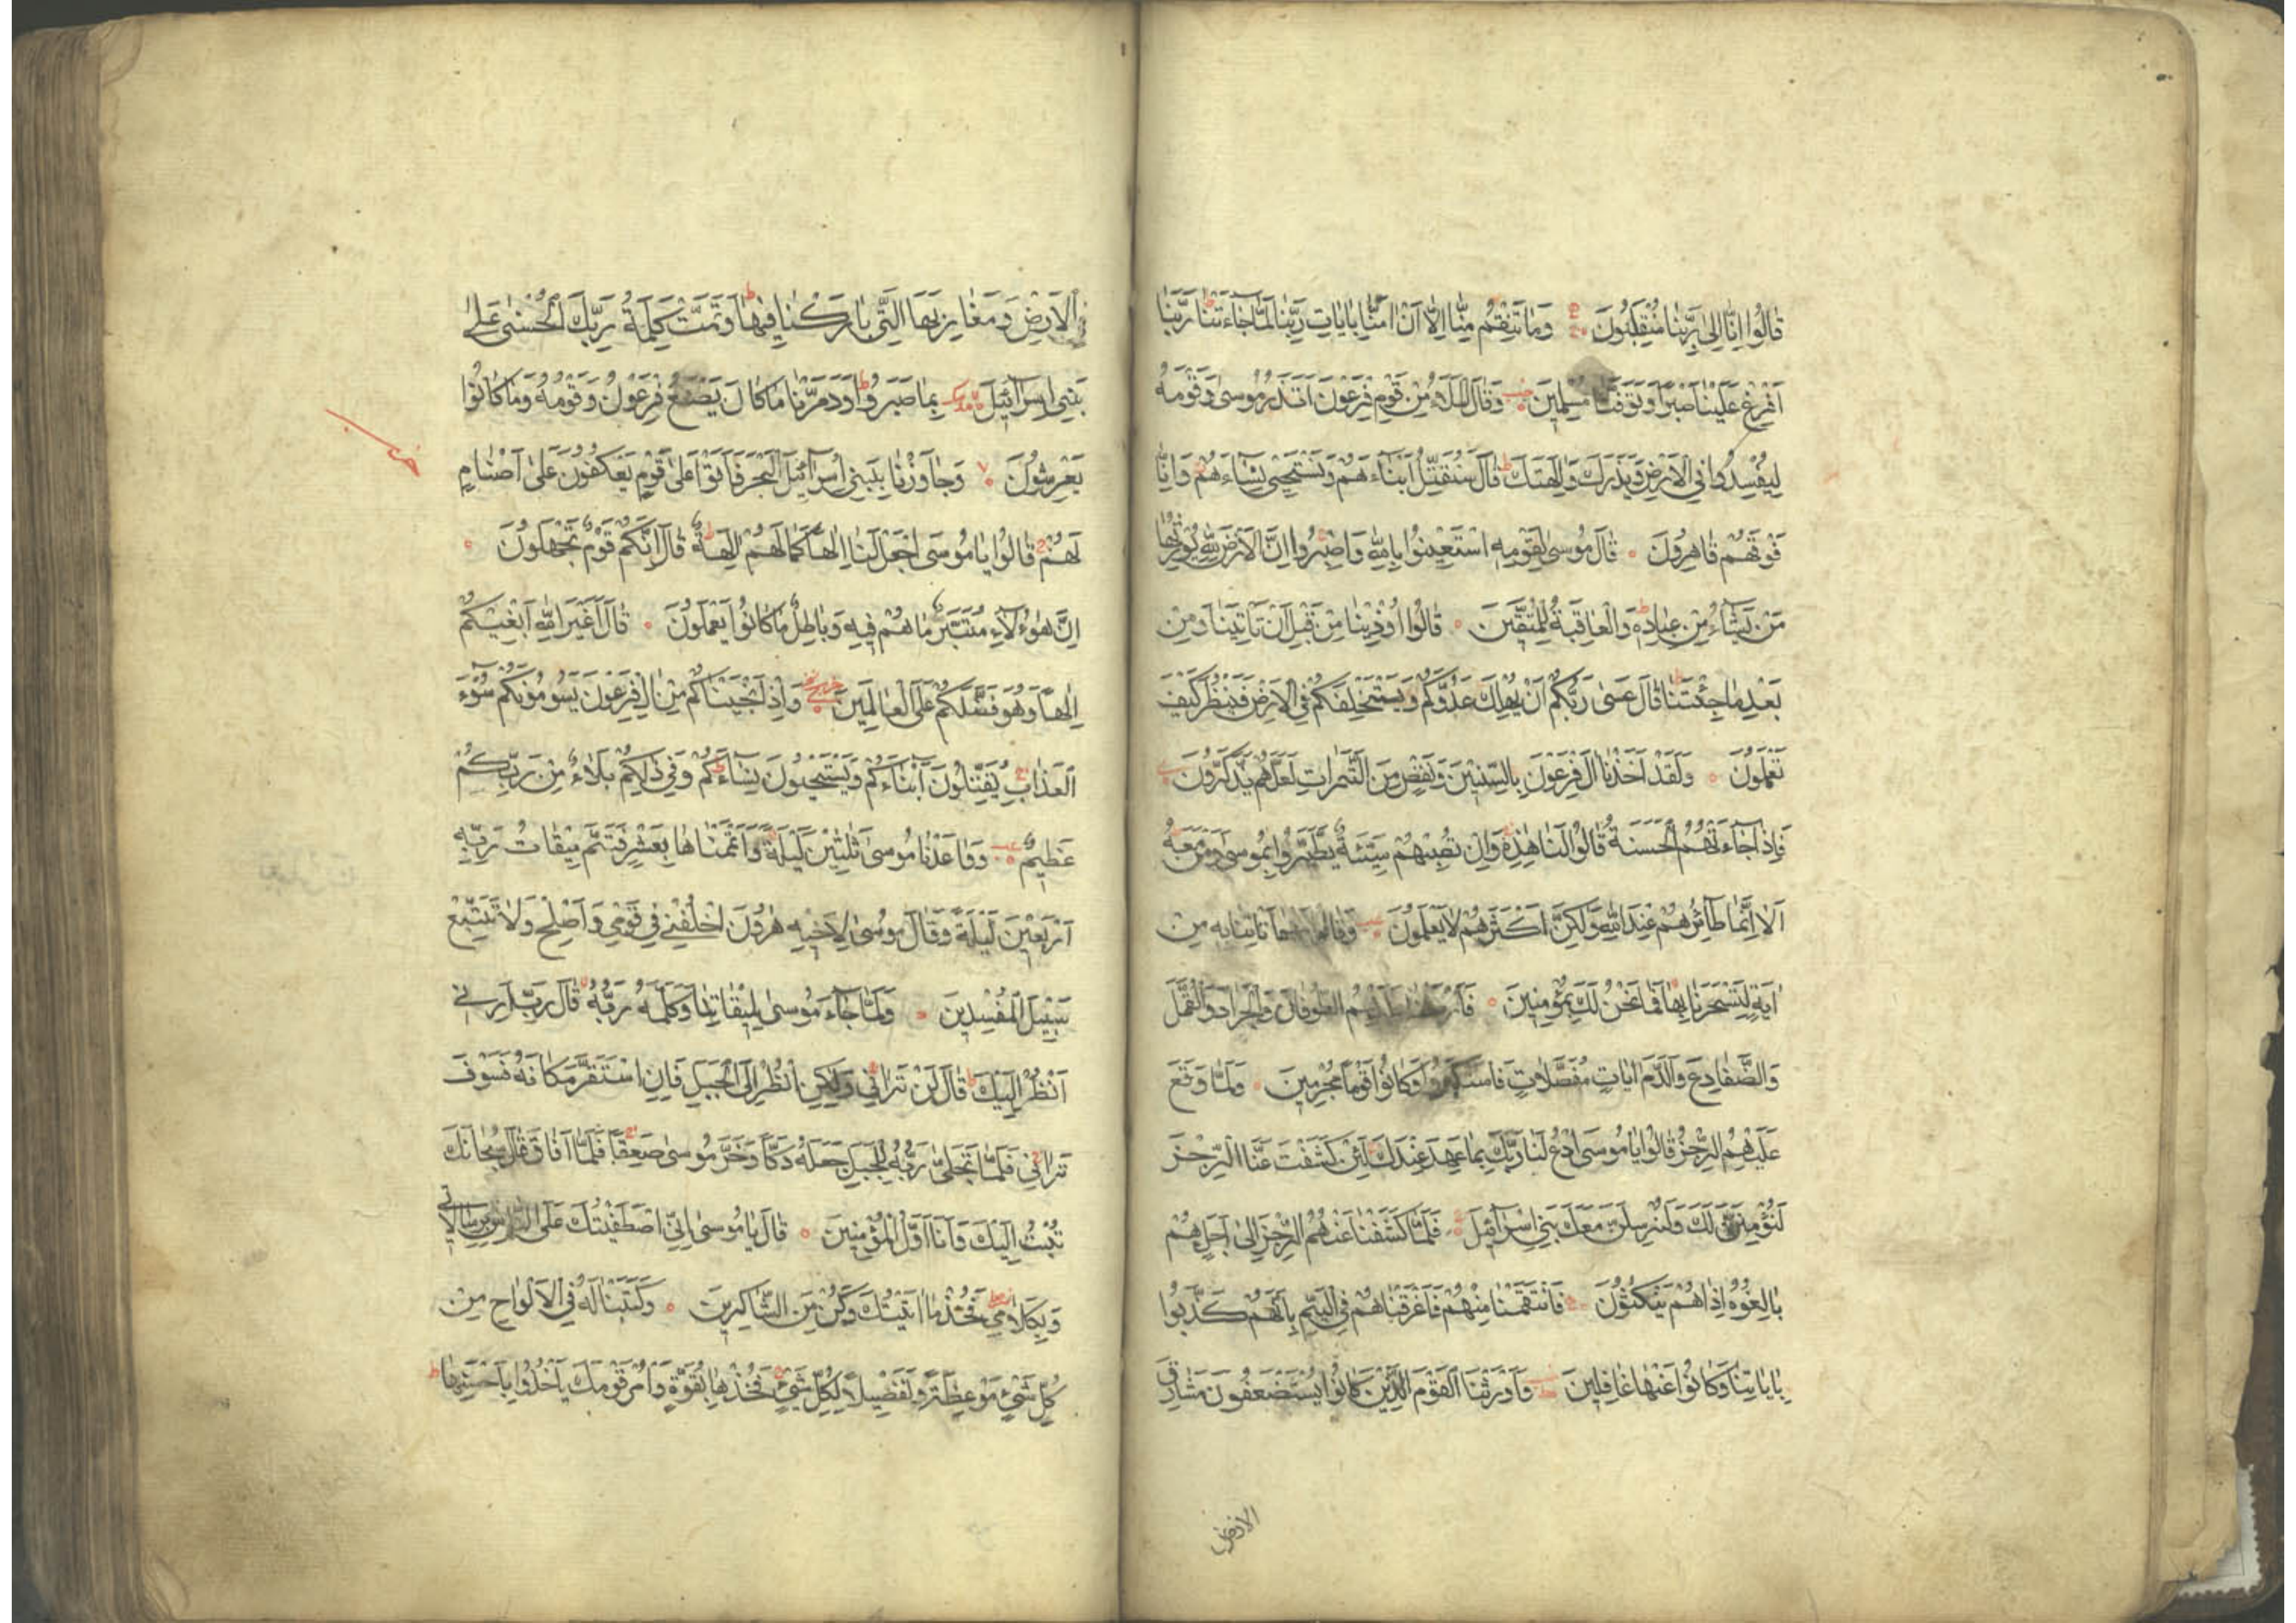 قَالُوا اِنَّا اِلٰى رَبِّنَا مُنْقَلِبُونَ وَمَا تَنْقِمُ مِنَّا اِلَّا اَنْ اٰمَنَّا بِاٰيَاتِ رَبِّنَا لَمَّا جَاءَتْنَا رَبَّنَا
اَفْرِغْ عَلَيْنَا صَبْرًا وَتَوَفَّنَا مُسْلِمِينَ وَقَالَ الْمَلَاُ مِنْ قَوْمِ فِرْعَوْنَ اَتَذَرُ مُوسٰى وَقَوْمَهُ
لِيُفْسِدُوا فِي الْاَرْضِ وَيَذَرَكَ وَاٰلِهَتَكَ قَالَ سَنُقَتِّلُ اَبْنَاءَهُمْ وَنَسْتَحْيِي نِسَاءَهُمْ وَاِنَّا
فَوْقَهُمْ قَاهِرُونَ قَالَ مُوسٰى لِقَوْمِهِ اسْتَعِينُوا بِاللّٰهِ وَاصْبِرُوا اِنَّ الْاَرْضَ لِلّٰهِ يُورِثُهَا
مَنْ يَشَاءُ مِنْ عِبَادِهِ وَالْعَاقِبَةُ لِلْمُتَّقِينَ قَالُوا اُوذِينَا مِنْ قَبْلِ اَنْ تَاْتِيَنَا وَمِنْ
بَعْدِ مَا جِئْتَنَا قَالَ عَسٰى رَبُّكُمْ اَنْ يُهْلِكَ عَدُوَّكُمْ وَيَسْتَخْلِفَكُمْ فِي الْاَرْضِ فَيَنْظُرَ كَيْفَ
تَعْمَلُونَ وَلَقَدْ اَخَذْنَا اٰلَ فِرْعَوْنَ بِالسِّنِينَ وَنَقْصٍ مِنَ الثَّمَرَاتِ لَعَلَّهُمْ يَذَّكَّرُونَ
فَاِذَا جَاءَتْهُمُ الْحَسَنَةُ قَالُوا لَنَا هٰذِهِ وَاِنْ تُصِبْهُمْ سَيِّئَةٌ يَطَّيَّرُوا بِمُوسٰى وَمَنْ مَعَهُ
اَلَا اِنَّمَا طَائِرُهُمْ عِنْدَ اللّٰهِ وَلٰكِنَّ اَكْثَرَهُمْ لَا يَعْلَمُونَ وَقَالُوا مَهْمَا تَاْتِنَا بِهِ مِنْ
اٰيَةٍ لِتَسْحَرَنَا بِهَا فَمَا نَحْنُ لَكَ بِمُؤْمِنِينَ فَاَرْسَلْنَا عَلَيْهِمُ الطُّوفَانَ وَالْجَرَادَ وَالْقُمَّلَ
وَالضَّفَادِعَ وَالدَّمَ اٰيَاتٍ مُفَصَّلَاتٍ فَاسْتَكْبَرُوا وَكَانُوا قَوْمًا مُجْرِمِينَ وَلَمَّا وَقَعَ
عَلَيْهِمُ الرِّجْزُ قَالُوا يَا مُوسَى ادْعُ لَنَا رَبَّكَ بِمَا عَهِدَ عِنْدَكَ لَئِنْ كَشَفْتَ عَنَّا الرِّجْزَ
لَنُؤْمِنَنَّ لَكَ وَلَنُرْسِلَنَّ مَعَكَ بَنِي اِسْرَائِيلَ فَلَمَّا كَشَفْنَا عَنْهُمُ الرِّجْزَ اِلٰى اَجَلٍ هُمْ
بَالِغُوهُ اِذَا هُمْ يَنْكُثُونَ فَانْتَقَمْنَا مِنْهُمْ فَاَغْرَقْنَاهُمْ فِي الْيَمِّ بِاَنَّهُمْ كَذَّبُوا
بِاٰيَاتِنَا وَكَانُوا عَنْهَا غَافِلِينَ وَاَوْرَثْنَا الْقَوْمَ الَّذِينَ كَانُوا يُسْتَضْعَفُونَ مَشَارِقَ
الارض
الْاَرْضِ وَمَغَارِبَهَا الَّتِي بَارَكْنَا فِيهَا وَتَمَّتْ كَلِمَةُ رَبِّكَ الْحُسْنٰى عَلٰى
بَنِي اِسْرَائِيلَ بِمَا صَبَرُوا وَدَمَّرْنَا مَا كَانَ يَصْنَعُ فِرْعَوْنُ وَقَوْمُهُ وَمَا كَانُوا
يَعْرِشُونَ وَجَاوَزْنَا بِبَنِي اِسْرَائِيلَ الْبَحْرَ فَاَتَوْا عَلٰى قَوْمٍ يَعْكُفُونَ عَلٰى اَصْنَامٍ
لَهُمْ قَالُوا يَا مُوسَى اجْعَلْ لَنَا اِلٰهًا كَمَا لَهُمْ اٰلِهَةٌ قَالَ اِنَّكُمْ قَوْمٌ تَجْهَلُونَ
اِنَّ هٰؤُلَاءِ مُتَبَّرٌ مَا هُمْ فِيهِ وَبَاطِلٌ مَا كَانُوا يَعْمَلُونَ قَالَ اَغَيْرَ اللّٰهِ اَبْغِيكُمْ
اِلٰهًا وَهُوَ فَضَّلَكُمْ عَلَى الْعَالَمِينَ وَاِذْ اَنْجَيْنَاكُمْ مِنْ اٰلِ فِرْعَوْنَ يَسُومُونَكُمْ سُوءَ
الْعَذَابِ يُقَتِّلُونَ اَبْنَاءَكُمْ وَيَسْتَحْيُونَ نِسَاءَكُمْ وَفِي ذٰلِكُمْ بَلَاءٌ مِنْ رَبِّكُمْ
عَظِيمٌ وَوَاعَدْنَا مُوسٰى ثَلٰثِينَ لَيْلَةً وَاَتْمَمْنَاهَا بِعَشْرٍ فَتَمَّ مِيقَاتُ رَبِّهِ
اَرْبَعِينَ لَيْلَةً وَقَالَ مُوسٰى لِاَخِيهِ هٰرُونَ اخْلُفْنِي فِي قَوْمِي وَاَصْلِحْ وَلَا تَتَّبِعْ
سَبِيلَ الْمُفْسِدِينَ وَلَمَّا جَاءَ مُوسٰى لِمِيقَاتِنَا وَكَلَّمَهُ رَبُّهُ قَالَ رَبِّ اَرِنِي
اَنْظُرْ اِلَيْكَ قَالَ لَنْ تَرَانِي وَلٰكِنِ انْظُرْ اِلَى الْجَبَلِ فَاِنِ اسْتَقَرَّ مَكَانَهُ فَسَوْفَ
تَرَانِي فَلَمَّا تَجَلّٰى رَبُّهُ لِلْجَبَلِ جَعَلَهُ دَكًّا وَخَرَّ مُوسٰى صَعِقًا فَلَمَّا اَفَاقَ قَالَ سُبْحَانَكَ
تُبْتُ اِلَيْكَ وَاَنَا اَوَّلُ الْمُؤْمِنِينَ قَالَ يَا مُوسٰى اِنِّي اصْطَفَيْتُكَ عَلَى النَّاسِ بِرِسَالَاتِي
وَبِكَلَامِي فَخُذْ مَا اٰتَيْتُكَ وَكُنْ مِنَ الشَّاكِرِينَ وَكَتَبْنَا لَهُ فِي الْاَلْوَاحِ مِنْ
كُلِّ شَيْءٍ مَوْعِظَةً وَتَفْصِيلًا لِكُلِّ شَيْءٍ فَخُذْهَا بِقُوَّةٍ وَاْمُرْ قَوْمَكَ يَاْخُذُوا بِاَحْسَنِهَا